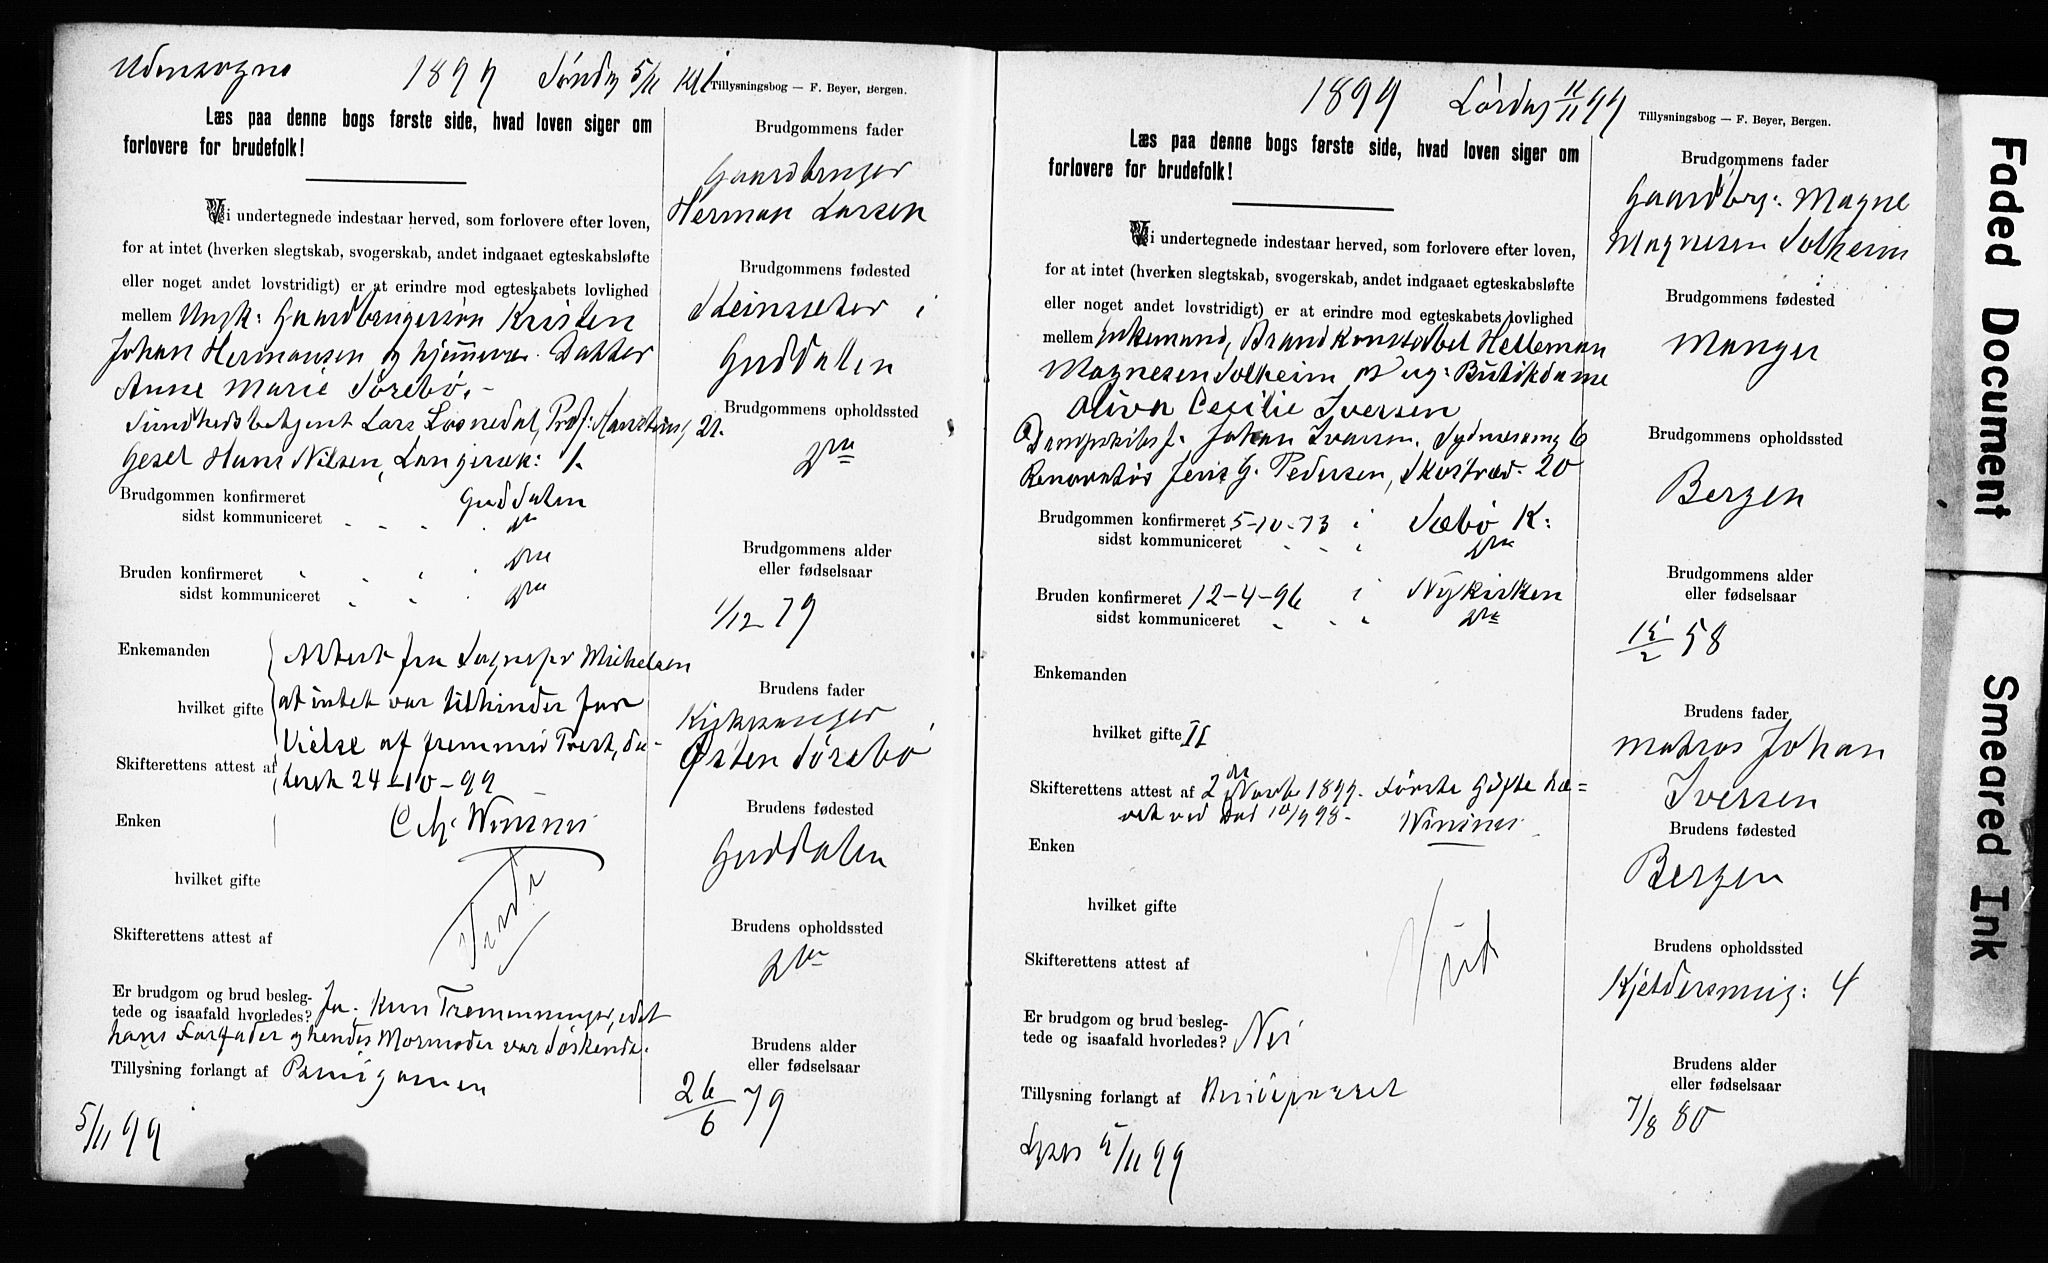 Udensogns 1899 Søndag 5/11 Kl 1
Tillysningsbog — F. Beyer, Bergen.
Læs paa denne bogs første side, hvad loven siger om
forlovere for brudefolk!
Vi undertegnede indestaar herved, som forlovere efter loven,
for at intet (hverken slegtskab, svogerskab, andet indgaaet egteskabsløfte
eller noget andet lovstridigt) er at erindre mod egteskabets lovlighed
mellem Ungk: Gaardbrugersøn Kristen
Johan Hermansen og hjemmev. Datter
Anne Marie Sørebø.
Sundhedsbetjent Lars Losnedal, Prof: Hansteens 21.
Gesel Hans Nilsen, 1.
Brudgommen konfirmeret Guddalen
sidst kommuniceret do
Bruden konfirmeret do
sidst kommuniceret do
Enkemanden
Attest fra Sognepr Michelsen
hvilket gifte
at intet var tilhinder for
Vielse af fremmed Præst, da-
Skifterettens attest af
teret 24-10-99
Enken
Wensner
hvilket gifte
Skifterettens attest af
Er brudgom og brud besleg-
tede og isaafald hvorledes? Ja. Kun Tremenninger, idet
hans Farfader og hendes Mormoder var Søskende.
Tillysning forlangt af Brudgommen
5/11 99
Brudgommens fader
Gaardbruger
Herman Larsen
Brudgommens fødested
Steinsæter i
Guddalen
Brudgommens opholdssted
do
Brudgommens alder
eller fødselsaar
1/12 79
Brudens fader
Kirkesanger
Østen Sørebø
Brudens fødested
Guddalen
Brudens opholdssted
do
Brudens alder
eller fødselsaar
26/6 79
1899 Lørdag 11/11 99
Tillysningsbog — F. Beyer, Bergen.
Læs paa denne bogs første side, hvad loven siger om
forlovere for brudefolk!
Vi undertegnede indestaar herved, som forlovere efter loven,
for at intet (hverken slegtskab, svogerskab, andet indgaaet egteskabsløfte
eller noget andet lovstridigt) er at erindre mod egteskabets lovlighed
mellem Enkemand, Brandkonstabel Helleman
Magnesen Solheim og ug: Butikdame
Oliva Cecilie Iversen
Dampskibsf. Johan Iversen. Sydnessmug 6
Renovatør Jens G. Pedersen, Skostræd. 20
Brudgommen konfirmeret 5-10-73 i Sæbø K:
sidst kommuniceret do
Bruden konfirmeret 12-4-96 i Nykirken
sidst kommuniceret do
Enkemanden
hvilket gifte II
Skifterettens attest af 2den Novbr 1899. Første Gifte hæ=
vet ved Død 10/9 98. Wensner
Enken
hvilket gifte
Skifterettens attest af
Viet
Er brudgom og brud besleg-
tede og isaafald hvorledes? Nei
Tillysning forlangt af Brudeparret
Lyses 5/11 99
Brudgommens fader
Gaardbrg: Magne
Magnesen Solheim
Brudgommens fødested
Manger
Brudgommens opholdssted
Bergen
Brudgommens alder
eller fødselsaar
15/2 58
Brudens fader
Matros Johan
Iversen
Brudens fødested
Bergen
Brudens opholdssted
Kjeldersmug: 4
Brudens alder
eller fødselsaar
7/8 80
Faded Document
Smeared Ink